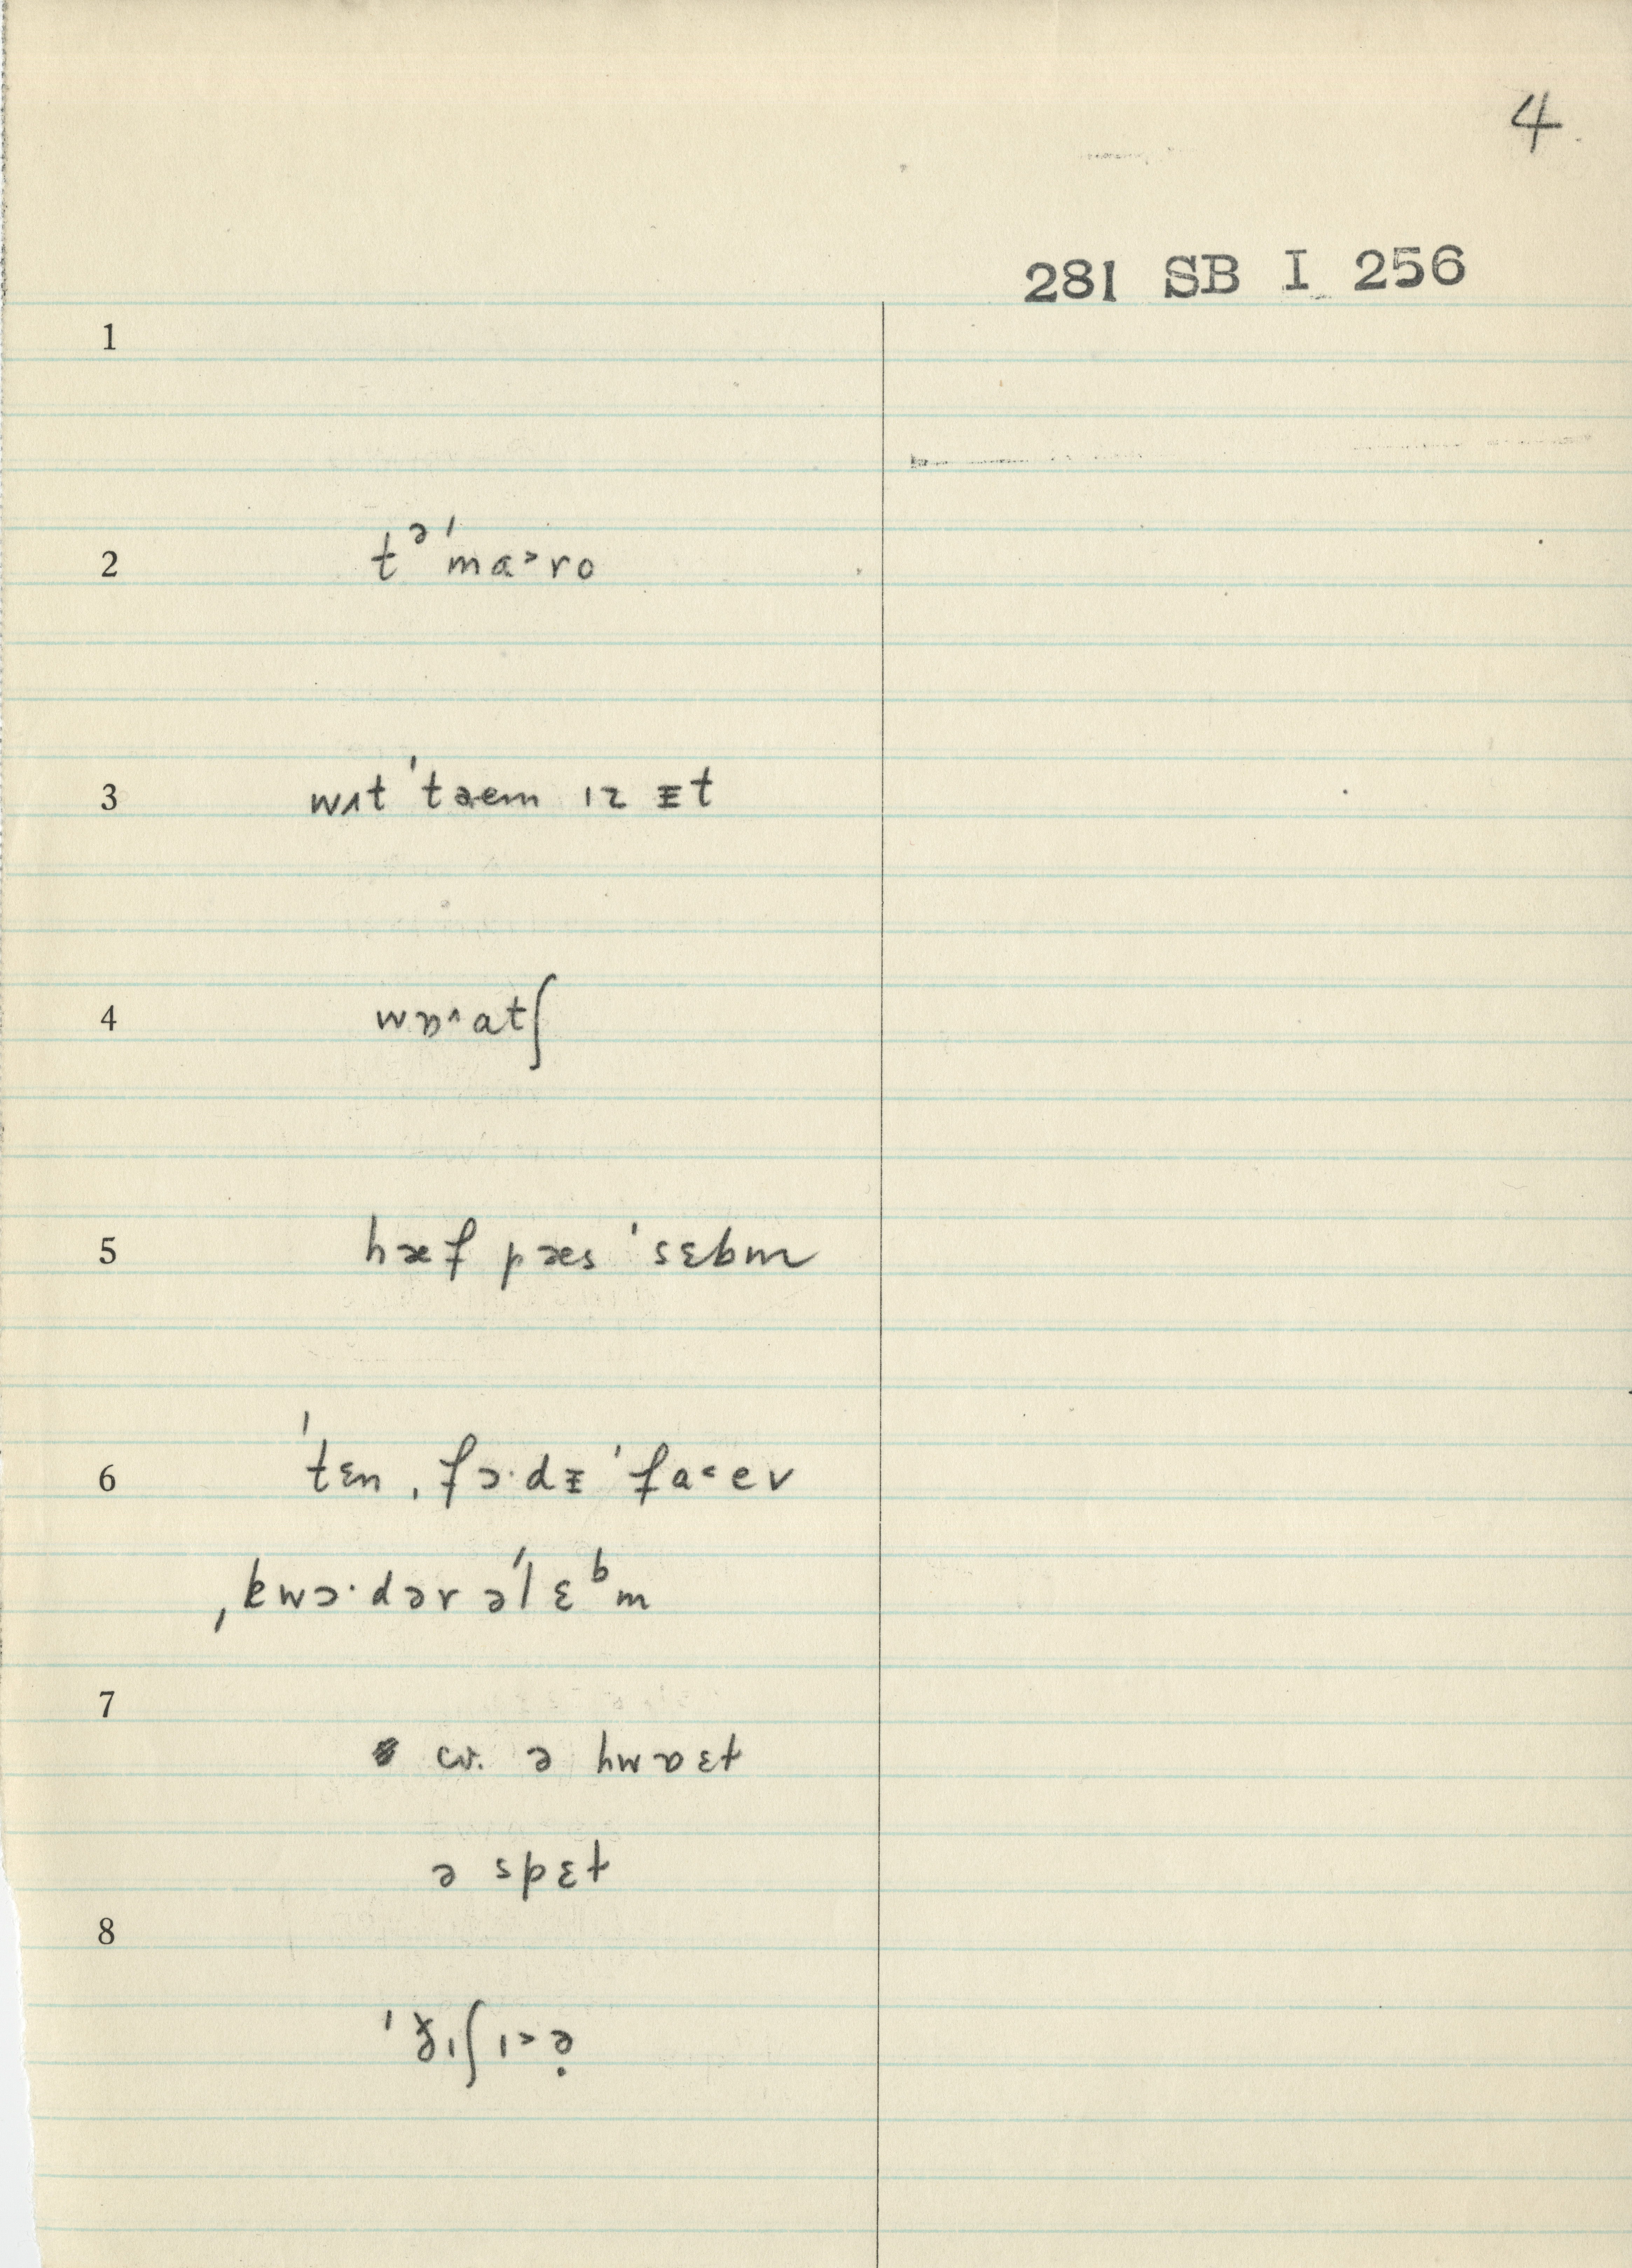 4
281 SB I 256
1
2 tᵊˈma˃ro
3 wʌt ˈtaem ɪz ᵻt
4 wɒ˄atʃ
5 hæf pæs ˈsɛbm
6 ˈtɛn ˌfɔ·dᵻ ˈfa˂ev
ˌkwɔ·dər əˈlɛᵇm
7
ɑr. ə hwɒɛt
ə spɛt
8